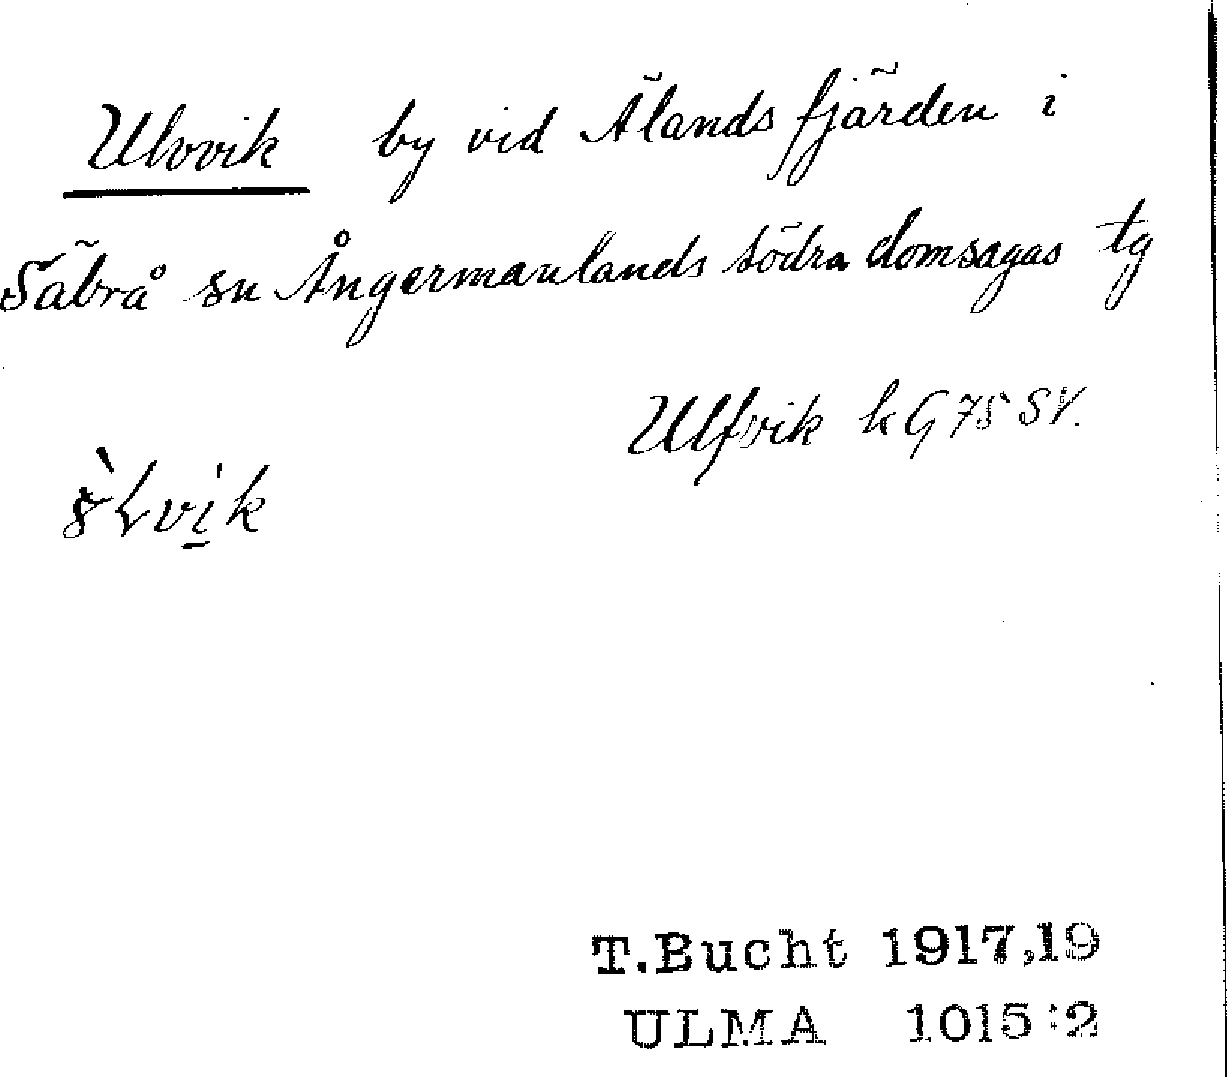 Ulvvik by vid Älandsfjärden i
Säbrå sn Ångermanlands södra domsagas tg
Ulfvik k G 75 SV.
vik
T.Bucht 1917,19
ULMA 1015:2